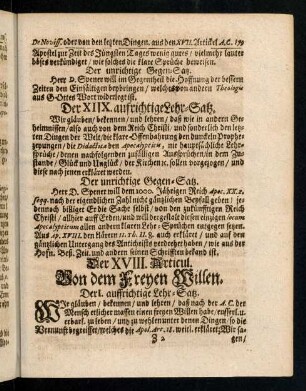 De Noviss. oder von den letzten Dingen. aus den XVII. Artickel A.C. 179
Apostel zur Zeit des Jüngsten Tages wenig gutes / vielmehr lauter
böses verkündiget / wie solches die klare Sprüche beweisen.
Der unrichtige Gegen-Satz.
Herr D. Spener will im Gegentheil die Hoffnung der bessern
Zeiten den Einfältigen beybringen / welches von andern Theologis
aus Gottes Wort widerlegt ist.
Der XIIX. auffrichtige Lehr-Satz.
Wir glauben / bekennen / und lehren / daß wie in andern Ge-
heimnissen / also auch von dem Reich Christi / und sonderlich den letz-
ten Dingen der Welt / die klare Offenbahrung den dunckeln Prophe-
zeyungen / die Didactica den Apocalypticis, die hauptsächliche Lehr-
sprüche / denen nachfolgenden zufälligen Außsprüchen / in dem Zu-
stande / Glück und Unglück / der Kirchen / sollen vorgezogen / und
diese nach jenen erkläret werden.
Der unrichtige Gegen-Satz.
Herr D. Spener will dem 1000. Jährigen Reich Apoc. XX. 2.
seqq. nach der eigentlichen Zahl nicht gänzlichen Beyfall geben / je-
dennoch billiget Er die Sache selbst / von den zukünfftigen Reich
Christi / allhier auff Erden / und will dergestalt diesen einzigen locum
Apocalypticum allen andern klaren Lehr-Sprüchen entgegen setzen.
Aus Ap. XVIII. den klaren 11. Th. II. 8. auch erklärt / und auf den
gänzlichen Untergang des Antichrists verdrehet haben / wie aus der
Hofn. Bess. Zeit. und andern seinen Schrifften bekand ist.
Der XVIII. Articul.
Von dem Freyen Willen.
Der I. auffrichtige Lehr-Satz.
Wir glauben / bekennen / und lehren / daß nach der A. C. der
Mensch etlicher massen einen freyen Willen habe / eusserl. e
rbarl. zu leben / und zu wehlen unter denen Dingen / so die
Vernunft begreiffet / welches die Apol. Art. 18. weitl. erkläret; Wir sa-
Z 2 gen /